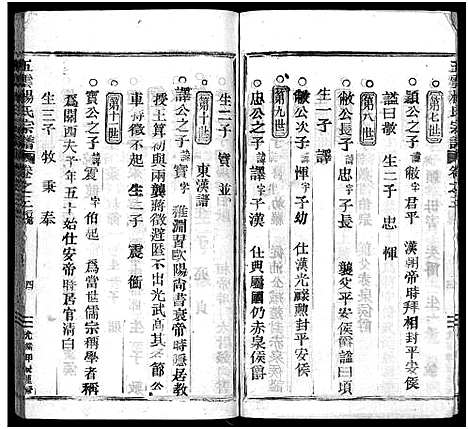 五雲楊氏宗譜 卷之三
穎公之子 敞 字君平 漢朝帝時拜相封平安侯
諡曰敬 生二子 忠 惲
第八世
敞公長子 忠 字子長 襲父平安侯諡曰頃
敞公次子 惲 字子幼 仕漢光祿勲封平安侯
第九世
忠公之子 譚 字子漢 仕典屬國仍赤泉侯爵
生二子 寶 並
第十世 東漢譜
譚公之子 寶 字稚淵習歐陽尚書哀帝時隱居教
授土莽初與兩龔蔣徵避匿不出光武高其節公
車特徵不起 生二子 震 衡
第十一世
寶公之子 震 字伯起 為當世儒宗稱學者稱
為關西夫子年五十始仕安帝時居官清白
生三子 牧 秉 奉
五雲楊氏宗譜 卷之三
四